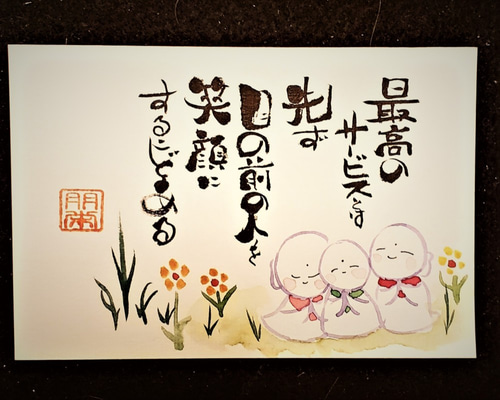 最高の
サービスとは
先ず
目の前の人を
笑顔に
することである